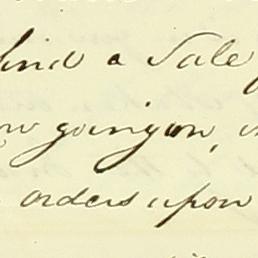 find a Sale
now going on,
orders upon